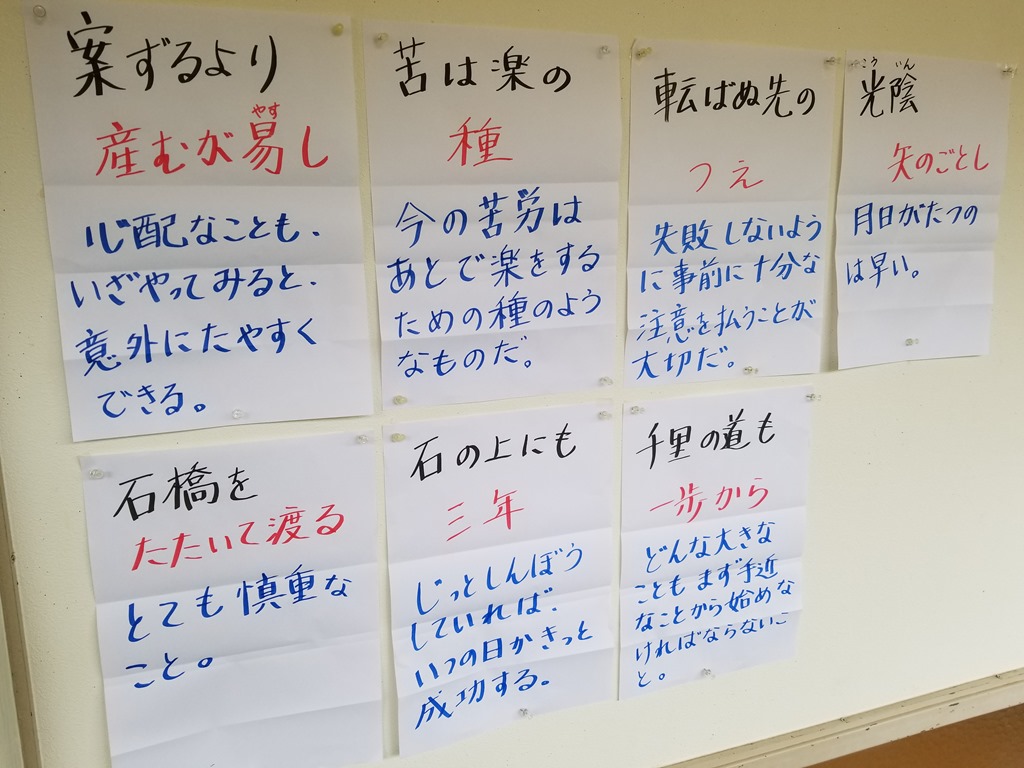 案ずるより
産むが易し
やす
心配なことも、
いざやってみると、
意外にたやすく
できる。
苦は楽の
種
今の苦労は
あとで楽をする
ための種のよう
なものだ。
転ばぬ先の
つえ
失敗しないよう
に事前に十分な
注意を払うことが
大切だ。
こういん
光陰
矢のごとし
月日がたつの
は早い。
石橋を
たたいて渡る
とても慎重な
こと。
石の上にも
三年
じっとしんぼう
していれば、
いつの日かきっと
成功する。
千里の道も
一歩から
どんな大きな
こともまず手近
なことから始めな
ければならないこ
と。